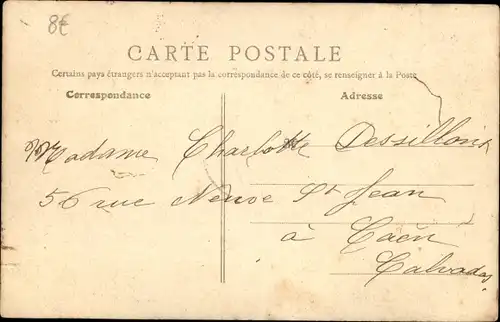 8€
CARTE POSTALE
Certains pays étrangers n'acceptant pas la correspondance de ce côté, se renseigner à la Poste
Correspondance
Adresse
Madame Charlotte Dessillons
56 rue Neuve St Jean
à Caën
Calvados